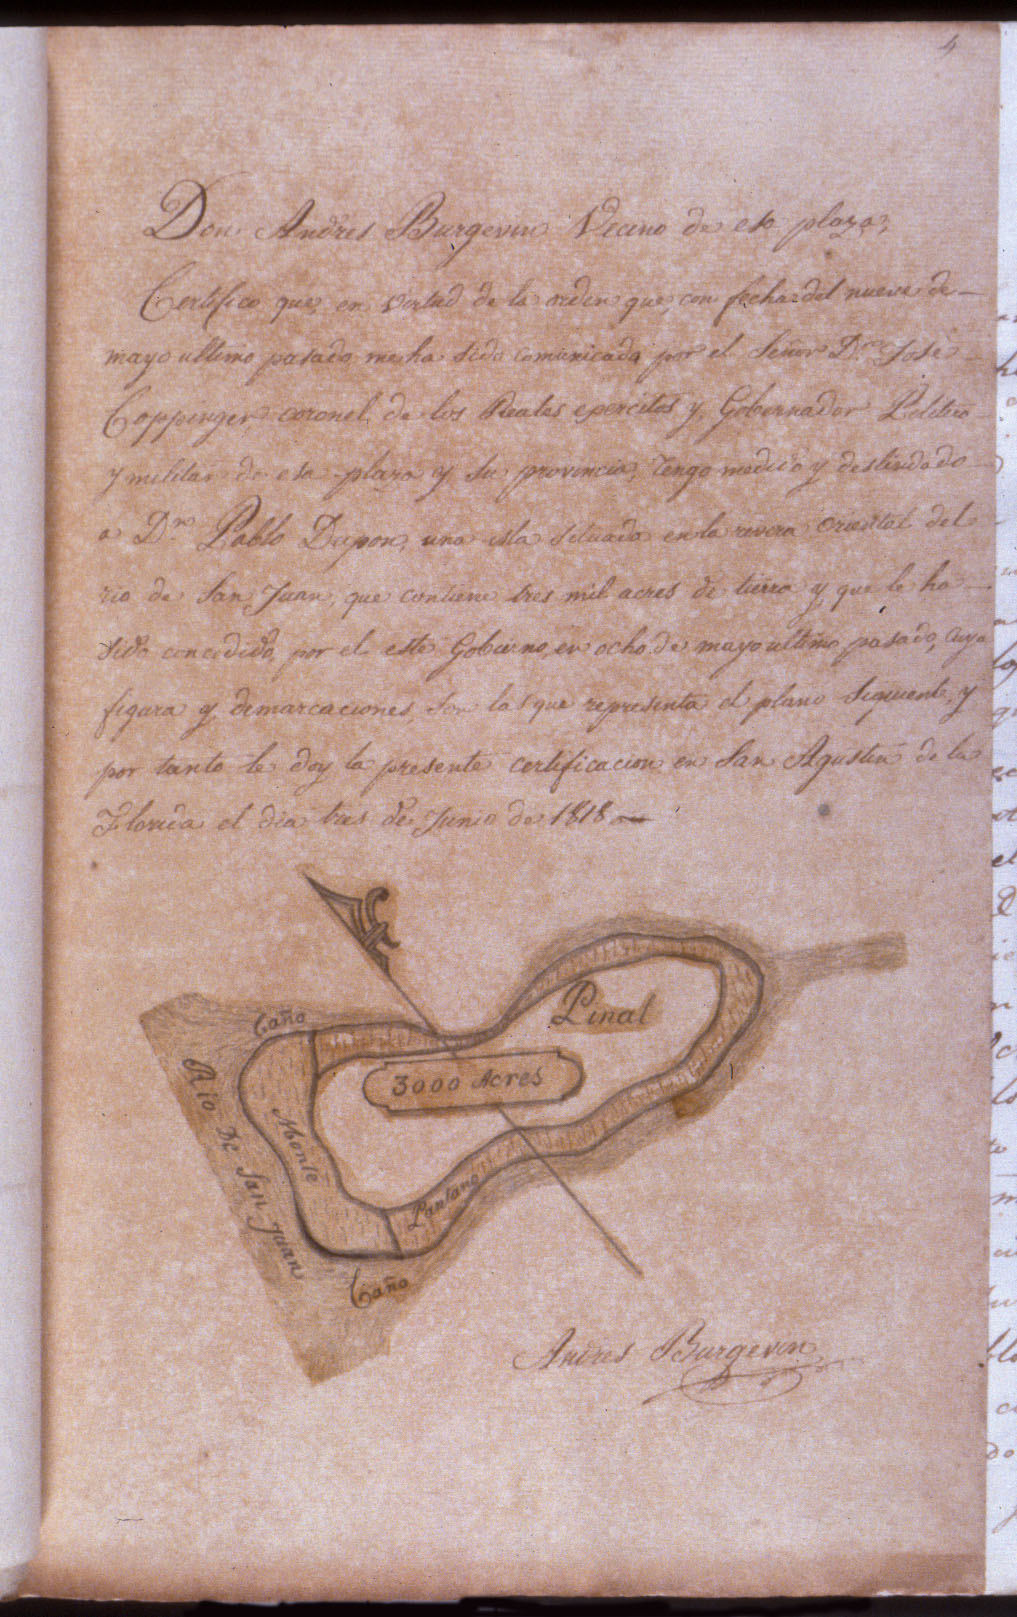 4
Don Andres Burgevin Vecino de esa plaza,
Certifico que, en virtud de la orden que, con fecha del nueve de
mayo ultimo pasado me ha sido comunicada por el Señor Dn. José
Coppinger coronel, de los Reales egercitos y, Gobernador Politico
y militar de esa plaza y su provincia, tengo medido y deslindado
a Dn. Pablo Dupon, una isla situada en la rivera oriental del
rio de San Juan, que contiene tres mil acres de tierra y que le ha
sido concedido, por el este Gobierno, en ocho de mayo ultimo pasado, cuya
figura y demarcaciones, son las que representa el plano siguiente, y
por tanto le doy la presente certificacion en San Agustin de la
Florida el dia tres de Junio de 1818
Caño
Pinal
3000 Acres
Rio De San Juan
Monte
Pantano
Caño
Andres Burgevin